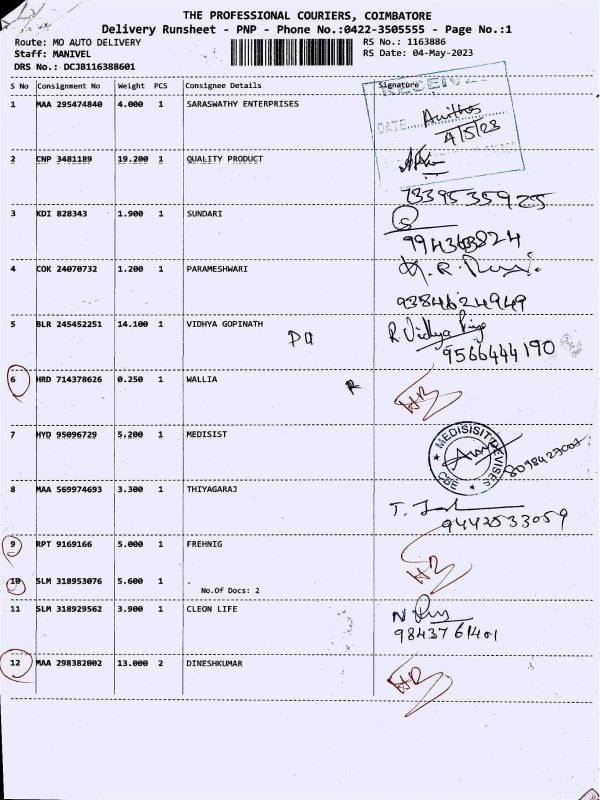 THE PROFESSIONAL COURIERS, COIMBATORE
Delivery Runsheet - PNP - Phone No.:0422-3505555 - Page No.:1
Route: MO AUTO DELIVERY RS No.: 1163886
Staff: MANIVEL RS Date: 04-May-2023
DRS No.: DCJB116388601
S No Consignment No Weight PCS Consignee Details Signature
RECEIVED
1 MAA 295474840 4.000 1 SARASWATHY ENTERPRISES
DATE
4/5/23
2 CNP 3481189 19.200 1 QUALITY PRODUCT
7339535925
3 KDI 828343 1.900 1 SUNDARI
4 COK 24070732 1.200 1 PARAMESHWARI
9384624949
5 BLR 245452251 14.100 1 VIDHYA GOPINATH
R. Vidhya
9566444190
6 HRD 714378626 0.250 1 WALLIA
R
7 HYD 95096729 5.200 1 MEDISIST
MEDISISIT DEVISES
CBE
8098423007
8 MAA 569974693 3.300 1 THIYAGARAJ
9442533059
9 RPT 9169166 5.000 1 FREHNIG
10 SLM 318953076 5.600 1 .
No.Of Docs: 2
11 SLM 318929562 3.900 1 CLEON LIFE
9843761401
12 MAA 298382002 13.000 2 DINESHKUMAR